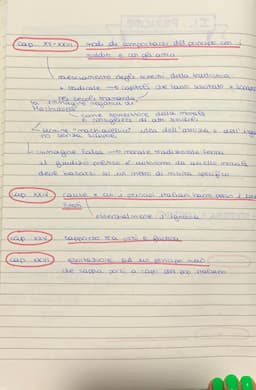 cap. XV-XXIII modi di comportarsi del principe con i
sudditi e con gli amici
rovesciamento degli schemi della trattatistica
e radicale → capitoli che hanno suscitato +
per secoli tramanda
la immagine negativa di
Machiavelli
come sovvertitore della morale
e consigliere di atti
termine "machiavellico" idea dell'
senza scrupoli
immagine falsa → morale tradizionale ferma
il giudizio politico è autonomo da quello morale
deve basarsi su un metro di misura specifico
cap. XXIV cause × cui i principi italiani hanno perso i loro
stati
essenzialmente l'ignavia
cap. XXV rapporto tra virtù e fortuna
cap. XXVI esortazione ad un principe nuovo
che sappia porsi a capo del pop. italiano